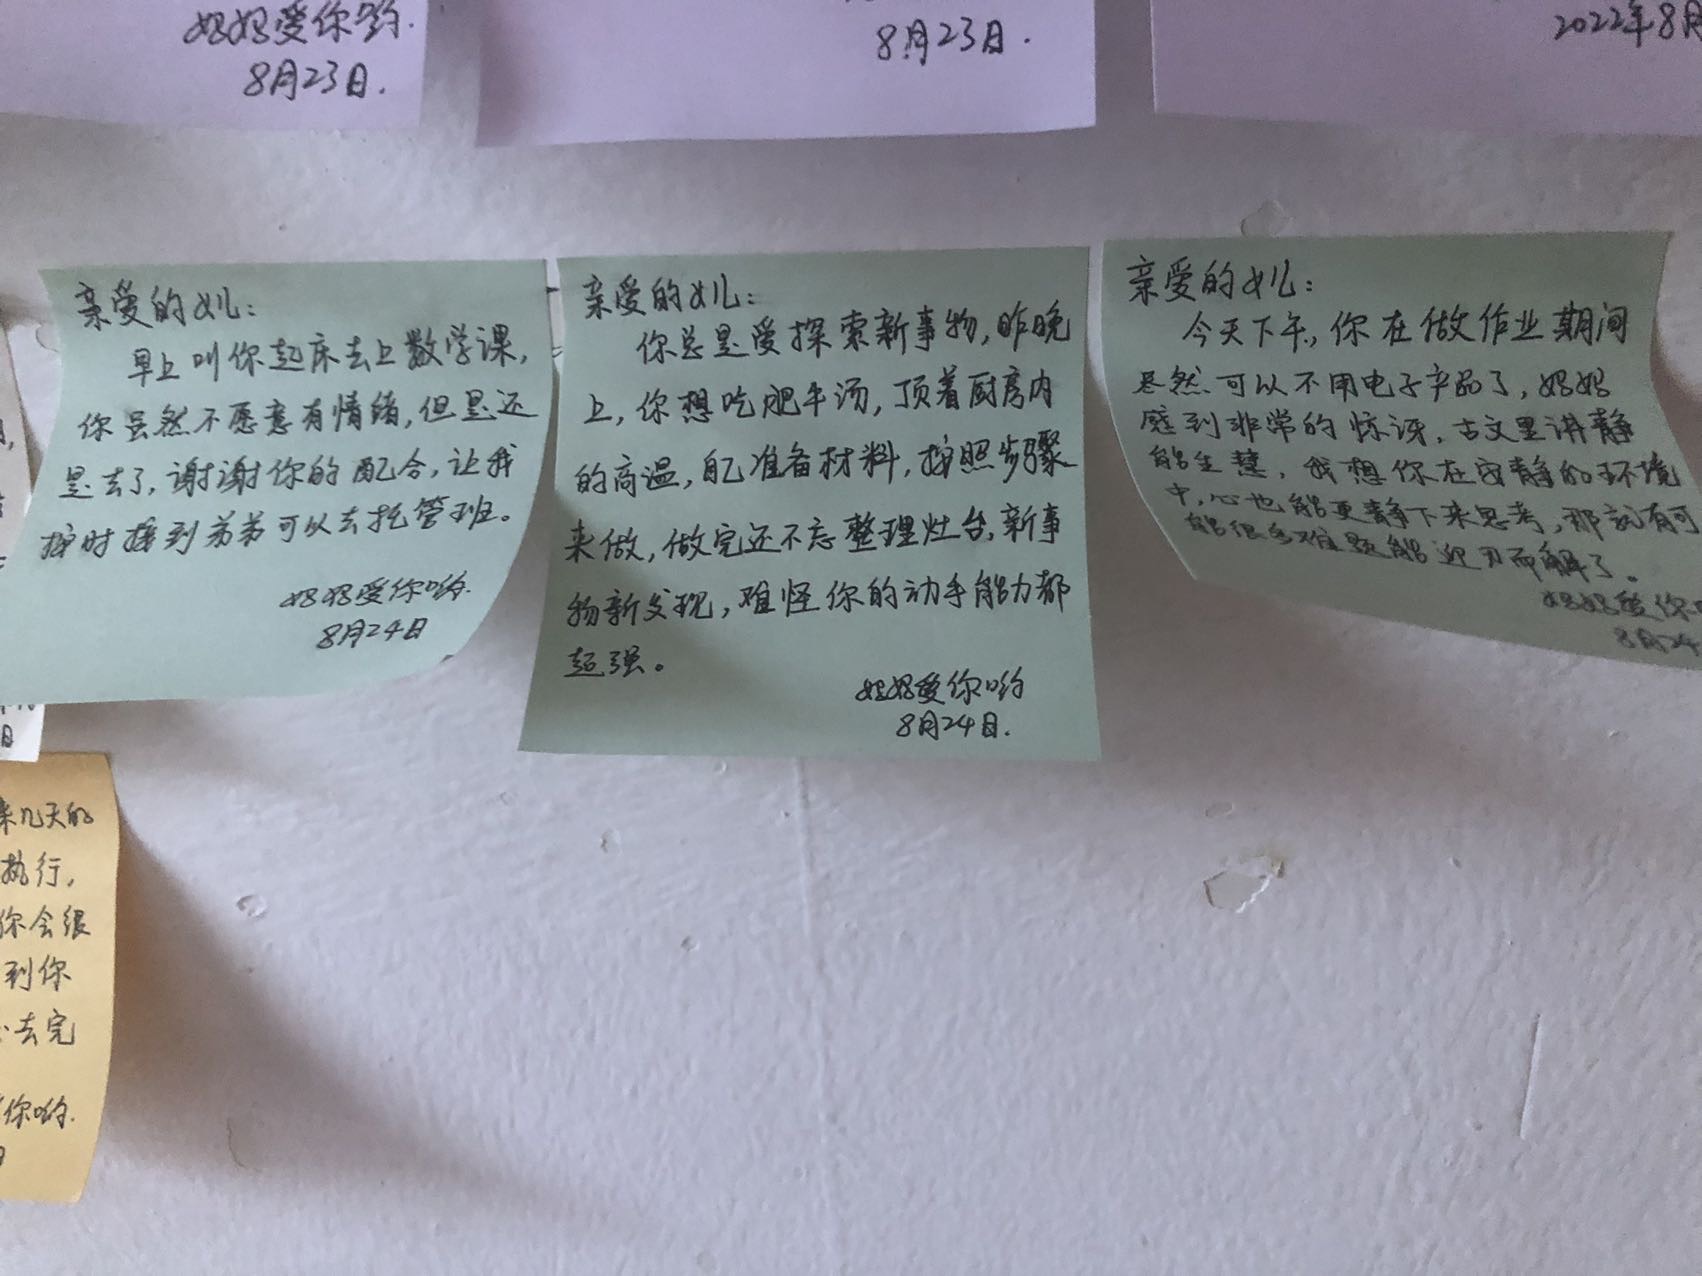 妈妈爱你哟.
8月23日.
8月23日.
2022年8月
亲爱的女儿:
早上叫你起床去上数学课,
你虽然不愿意有情绪,但是还
是去了,谢谢你的配合,让我
按时接到弟弟可以去托管班。
妈妈爱你哟.
8月24日
亲爱的女儿:
你总是爱探索新事物,昨晚
上,你想吃肥牛汤,顶着厨房内
的高温,自己准备材料,按照步骤
来做,做完还不忘整理灶台,新事
物新发现,难怪你的动手能力都
超强。
妈妈爱你哟
8月24日.
亲爱的女儿:
今天下午,你在做作业期间
居然可以不用电子产品了,妈妈
感到非常的惊讶,古文里讲静
能生慧,我想你在安静的环境
中,心也能更静下来思考,那就有可
能很多难题能迎刃而解了。
妈妈爱你
8月24
日
来几天的
执行,
你会很
到你
去完
你哟.